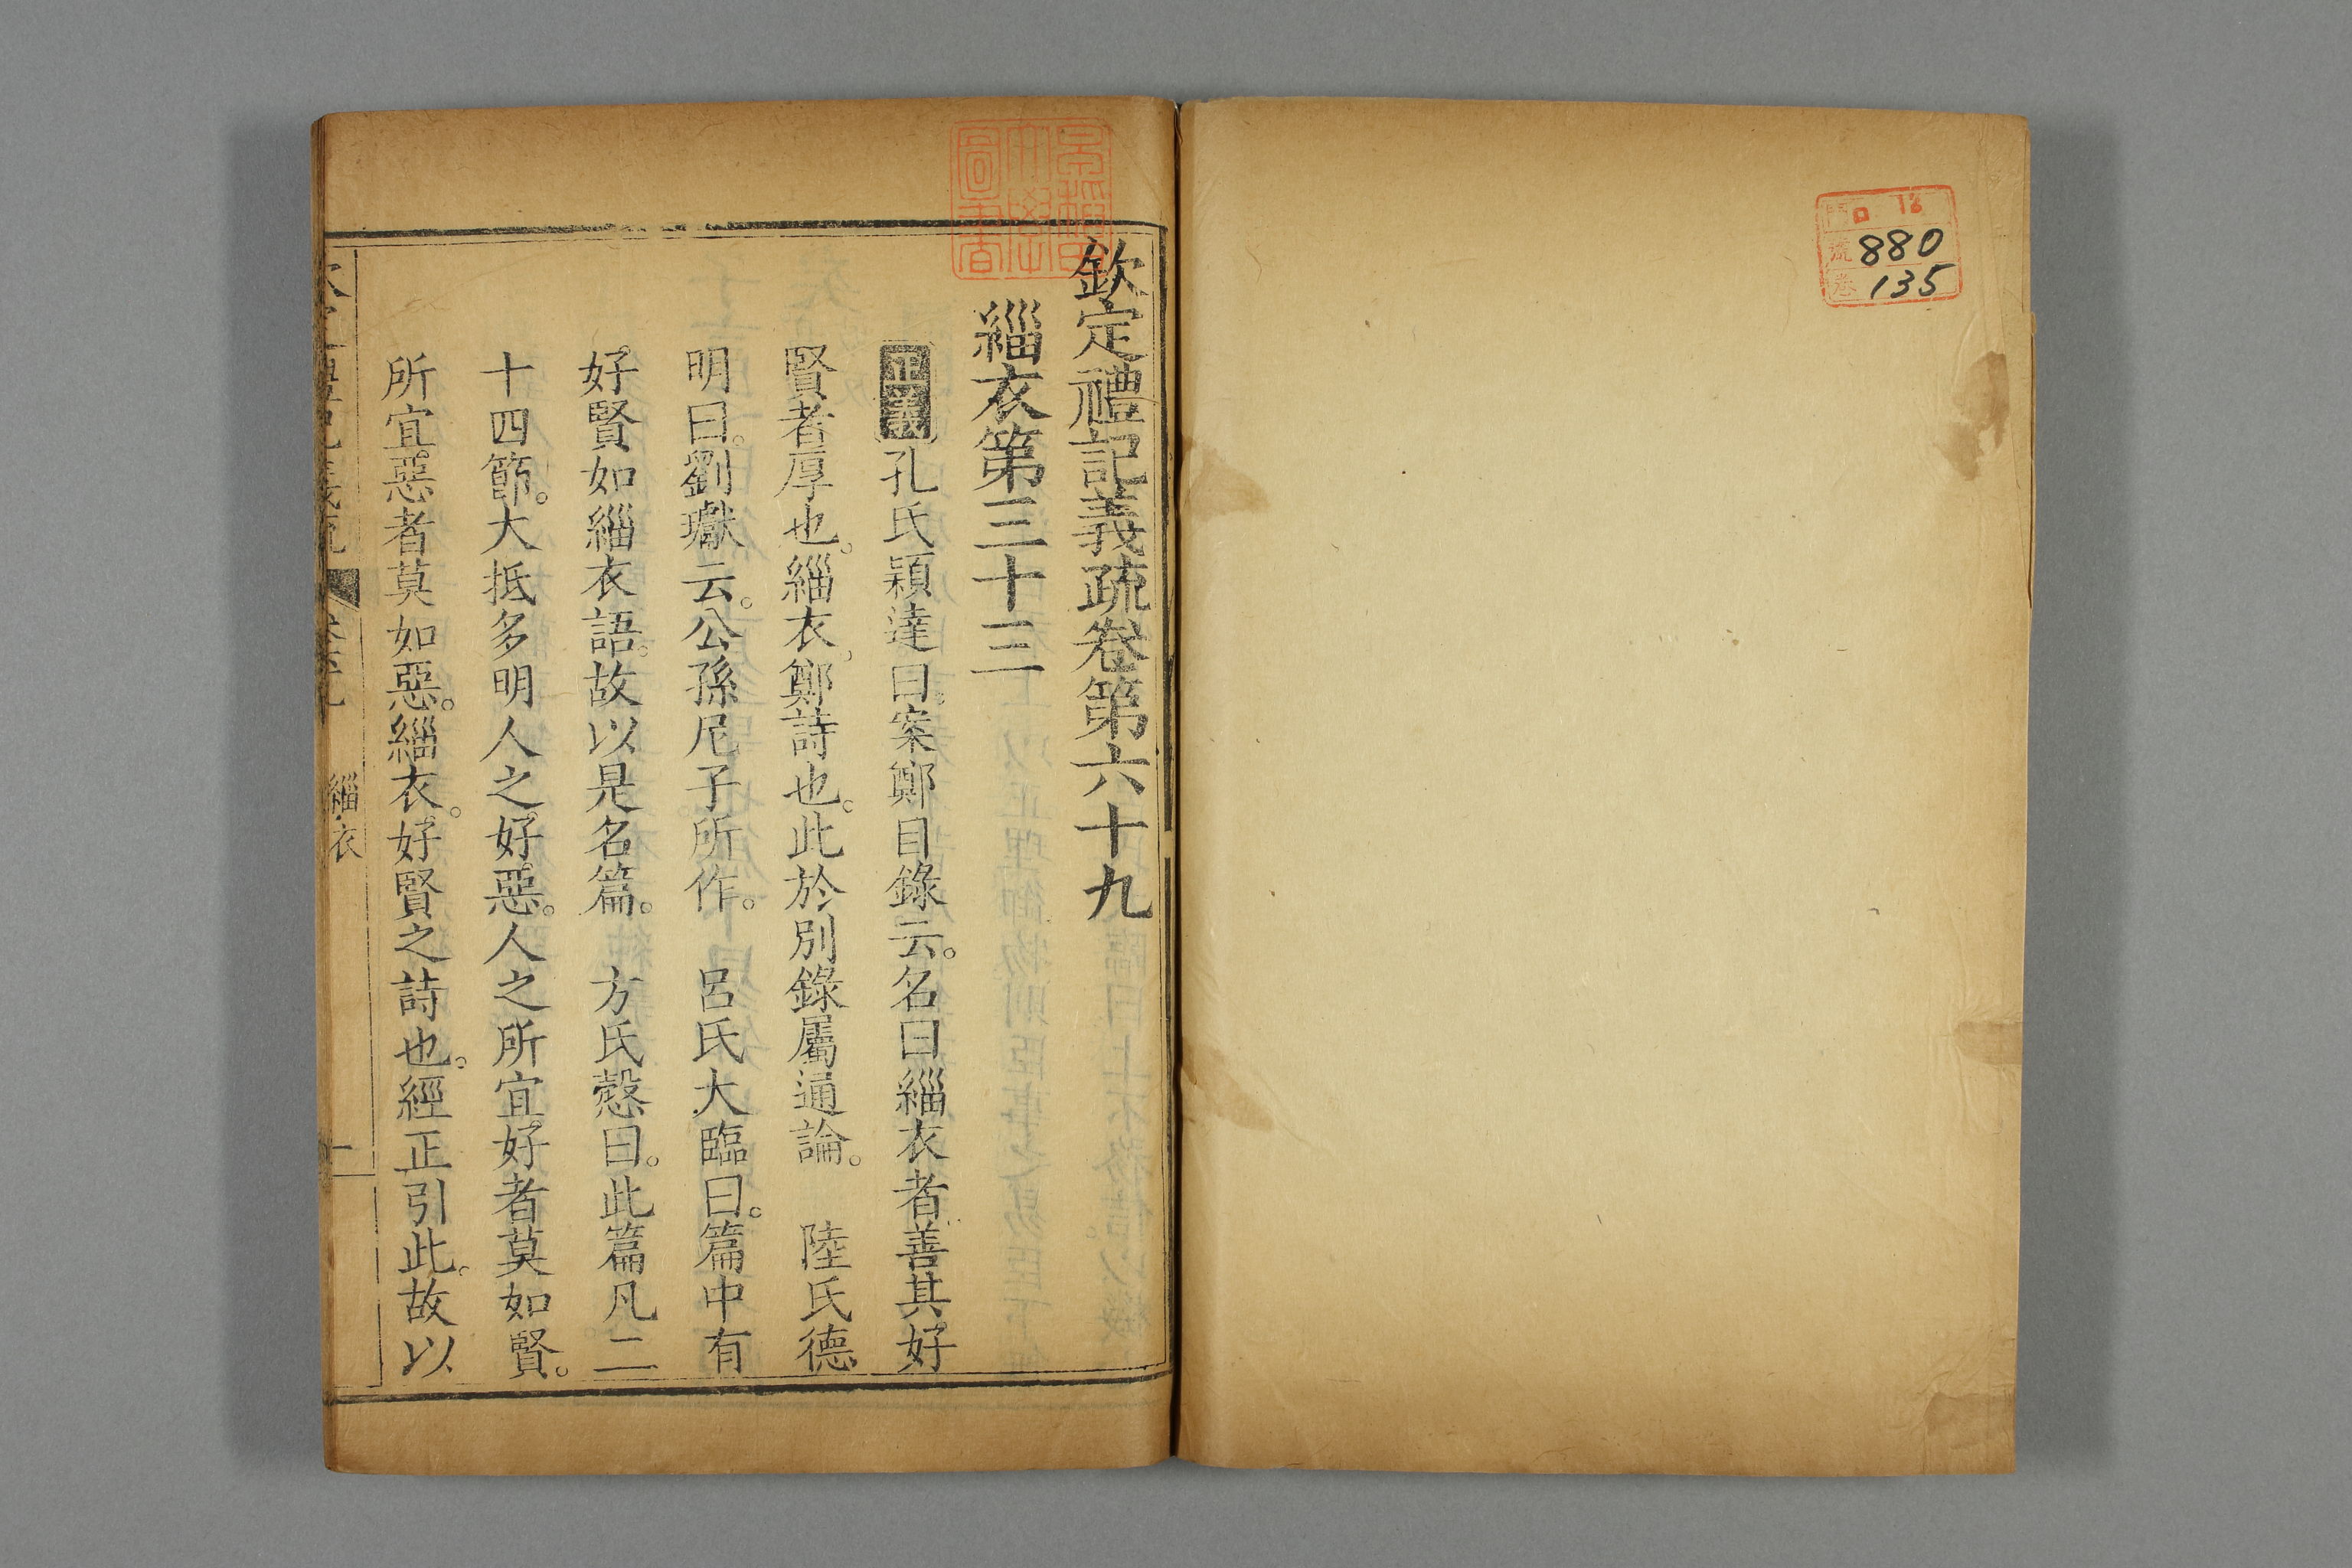 門 ロ 12
號 880
卷 135
早稻田大學圖書
欽定禮記義疏卷第六十九
緇衣第三十三
正義孔氏穎達曰。案鄭目錄云。名曰緇衣者善其好
賢者厚也。緇衣鄭詩也。此於別錄屬通論。 陸氏德
明曰。劉瓛云。公孫尼子所作。 呂氏大臨曰。篇中有
好賢如緇衣語。故以是名篇。 方氏慤曰。此篇凡二
十四節。大抵多明人之好惡。人之所宜好者莫如賢。
所宜惡者莫如惡。緇衣。好賢之詩也。經正引此。故以
緇衣